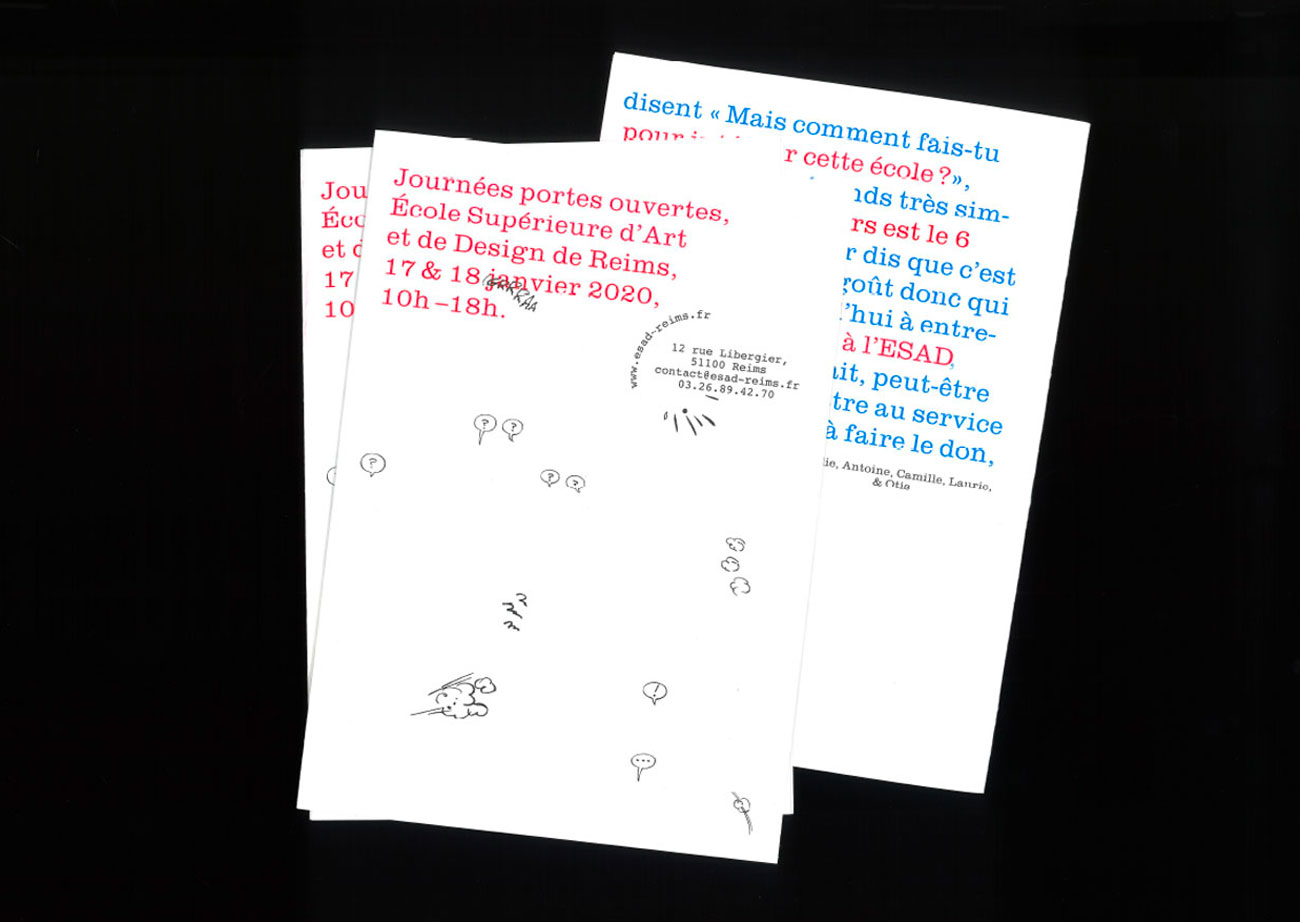 disent « Mais comment fais-tu
pour
r cette école ? »,
nds très sim-
rs est le 6
r dis que c’est
goût donc qui
’hui à entre-
à l’ESAD,
ait, peut-être
tre au service
à faire le don,
lie, Antoine, Camille, Laurie,
& Otie
Jou
Éco
et d
17
10
Journées portes ouvertes,
École Supérieure d’Art
et de Design de Reims,
17 & 18 janvier 2020,
10h – 18h.
www.esad-reims.fr
12 rue Libergier,
51100 Reims
contact@esad-reims.fr
03.26.89.42.70
? ?
?
? ?
!
...